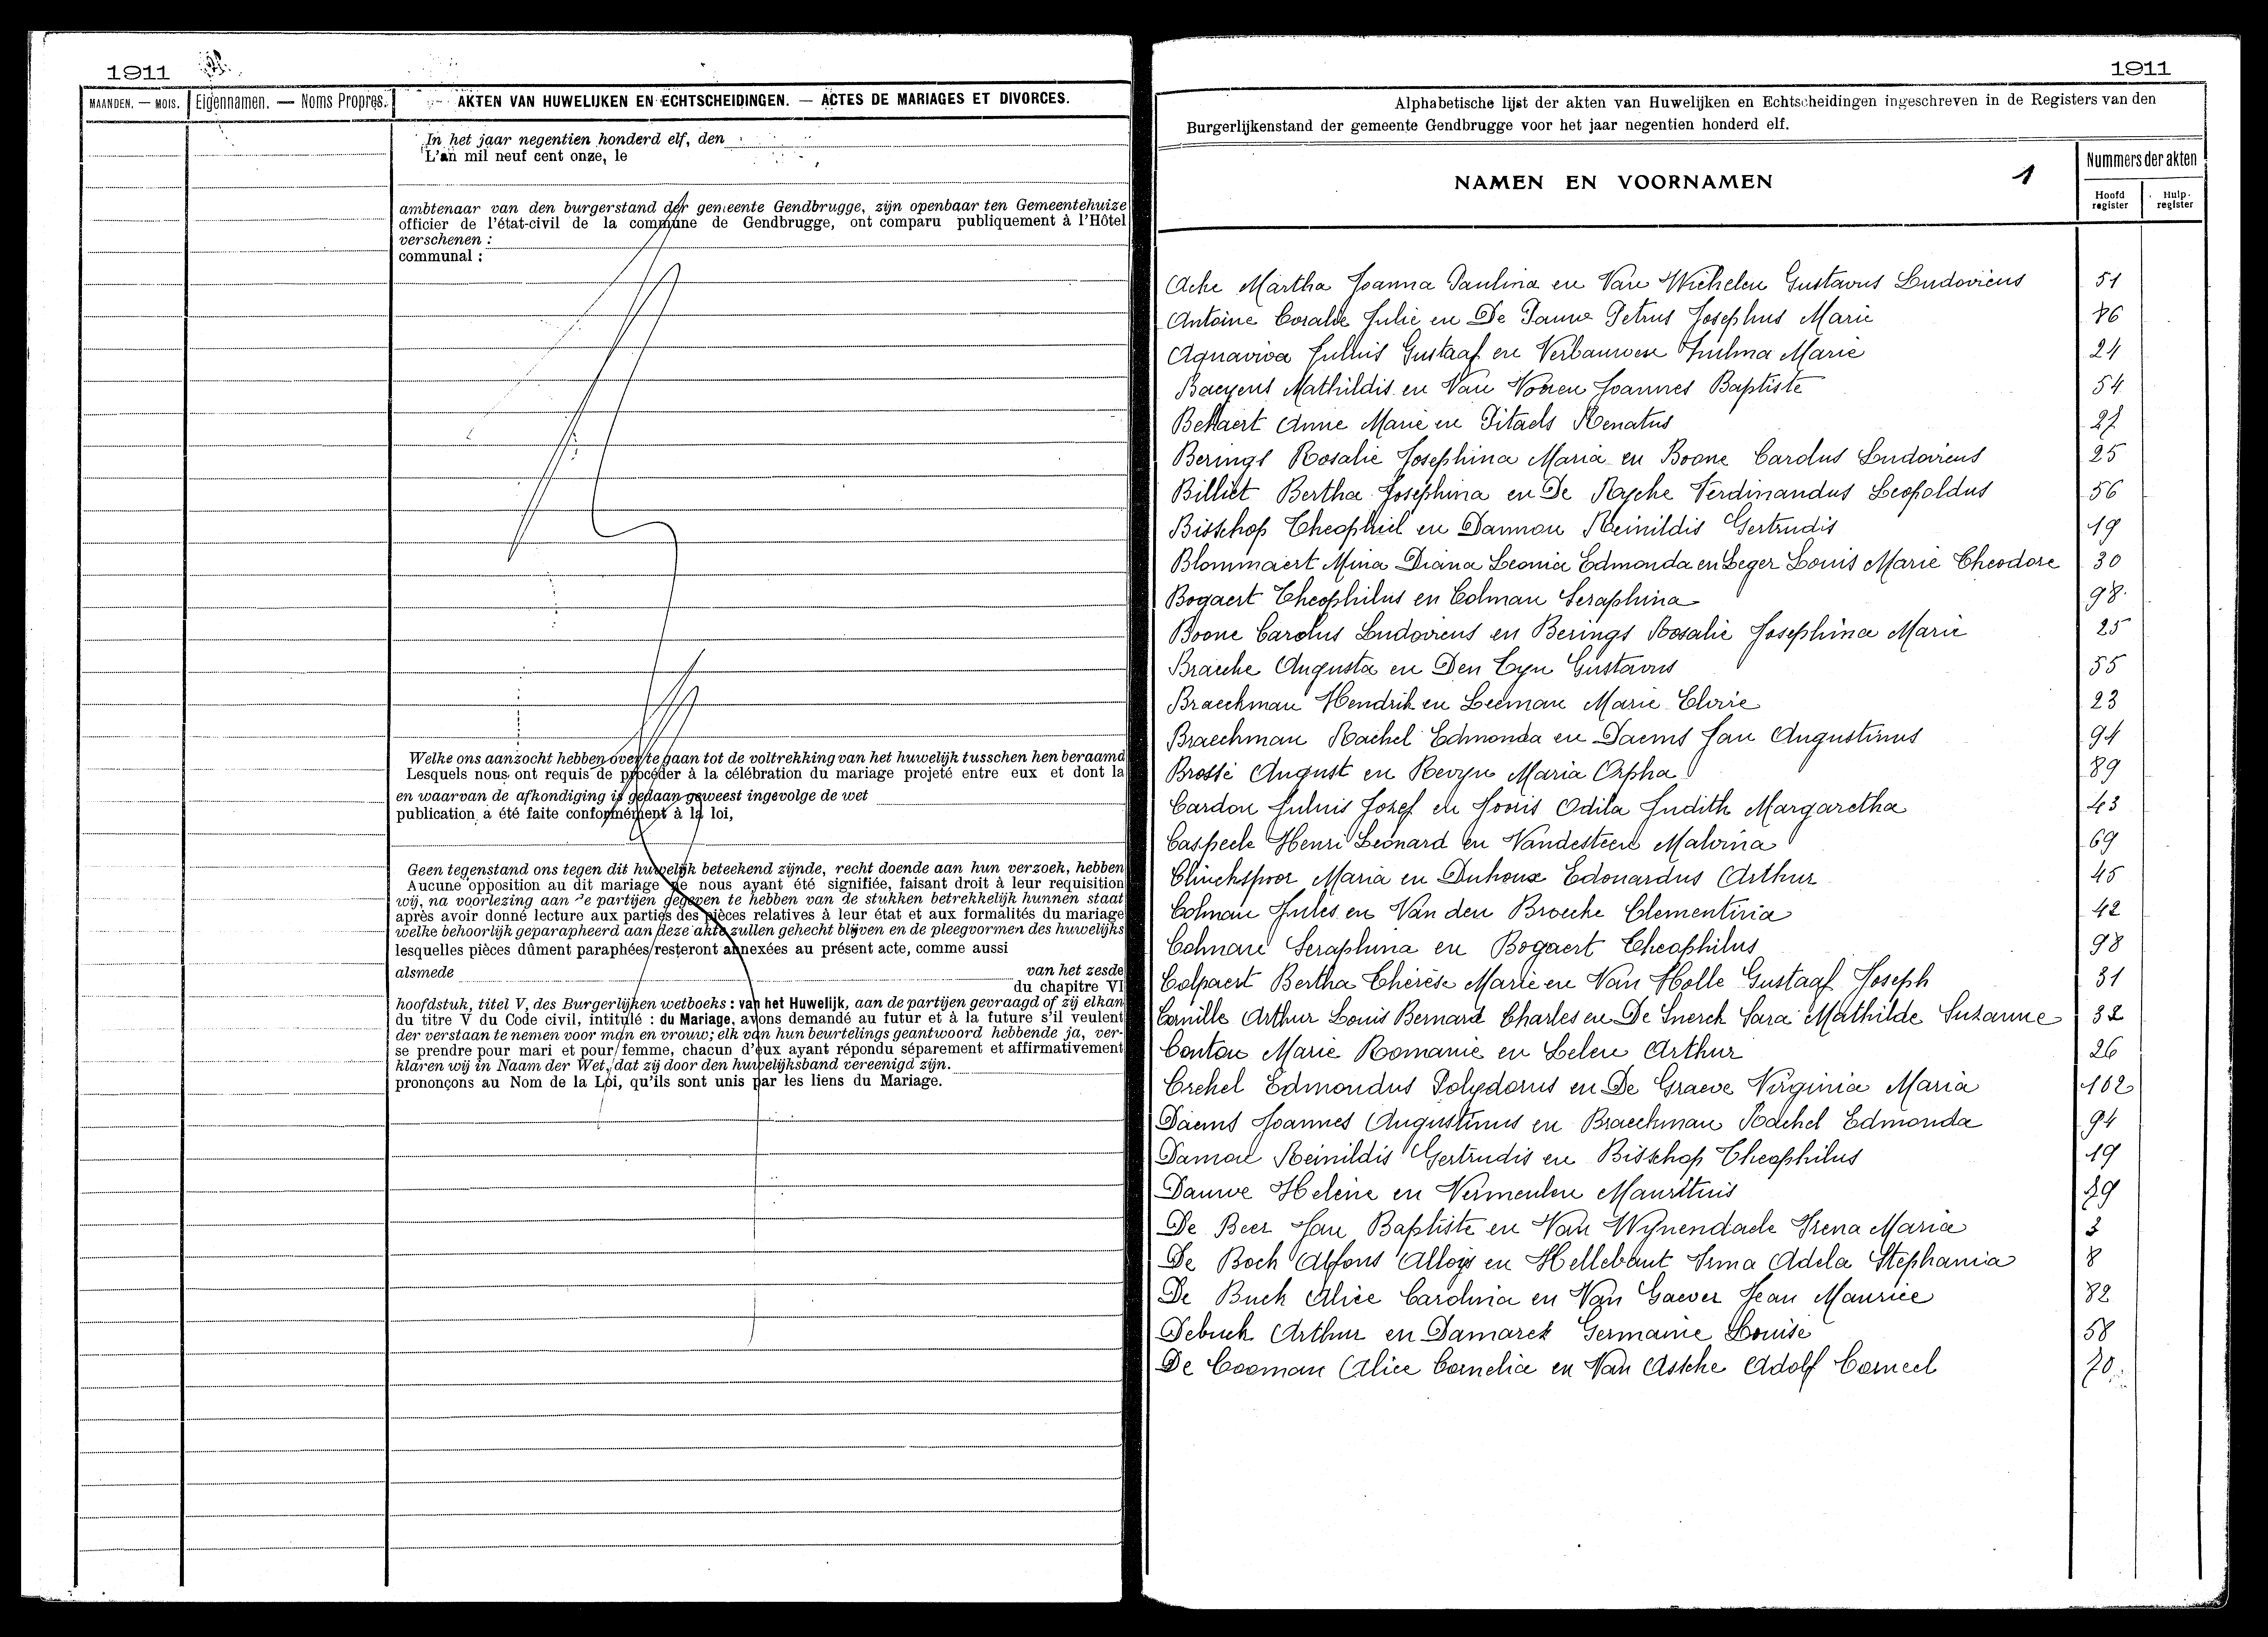 1911
MAANDEN. — MOIS.
Eigennamen. — Noms Propres.
AKTEN VAN HUWELIJKEN EN ECHTSCHEIDINGEN. — ACTES DE MARIAGES ET DIVORCES.
In het jaar negentien honderd elf, den
L'an mil neuf cent onze, le
ambtenaar van den burgerstand der gemeente Gendbrugge, zijn openbaar ten Gemeentehuize
officier de l'état-civil de la commune de Gendbrugge, ont comparu publiquement à l'Hôtel
verschenen :
communal :
Welke ons aanzocht hebben over te gaan tot de voltrekking van het huwelijk tusschen hen beraamd
Lesquels nous ont requis de procéder à la célébration du mariage projeté entre eux et dont la
en waarvan de afkondiging is gedaan geweest ingevolge de wet
publication a été faite conformément à la loi,
Geen tegenstand ons tegen dit huwelijk beteekend zijnde, recht doende aan hun verzoek, hebben
Aucune opposition au dit mariage ne nous ayant été signifiée, faisant droit à leur requisition
wij, na voorlezing aan de partijen gegeven te hebben van de stukken betrekkelijk hunnen staat
après avoir donné lecture aux parties des pièces relatives à leur état et aux formalités du mariage
welke behoorlijk geparapheerd aan deze akte zullen gehecht blijven en de pleegvormen des huwelijks
lesquelles pièces dûment paraphées resteront annexées au présent acte, comme aussi
alsmede van het zesde
du chapitre VI
hoofdstuk, titel V, des Burgerlijken wetboeks : van het Huwelijk, aan de partijen gevraagd of zij elkan
du titre V du Code civil, intitulé : du Mariage, avons demandé au futur et à la future s'il veulent
der verstaan te nemen voor man en vrouw; elk van hun beurtelings geantwoord hebbende ja, ver-
se prendre pour mari et pour femme, chacun d'eux ayant répondu séparement et affirmativement
klaren wij in Naam der Wet, dat zij door den huwelijksband vereenigd zijn.
prononçons au Nom de la Loi, qu'ils sont unis par les liens du Mariage.
1911
Alphabetische lijst der akten van Huwelijken en Echtscheidingen ingeschreven in de Registers van den
Burgerlijkenstand der gemeente Gendbrugge voor het jaar negentien honderd elf.
NAMEN EN VOORNAMEN 1
Nummers der akten
Hoofd register
Hulp-register
Ache Martha Joanna Paulina en Van Wichelen Gustavus Ludovicus 51
Antoine Coralde Julie en De Pauw Petrus Josephus Marie 86
Aquaviva Julius Gustaaf en Verbauwen Zulma Marie 24
Baeyens Mathildis en Van Vooren Joannes Baptiste 54
Bekaert Anne Marie en Pitaels Renatus 27
Berings Rosalie Josephina Maria en Boone Carolus Ludovicus 25
Billiet Bertha Josephina en De Rycke Ferdinandus Leopoldus 56
Bisschop Theophiel en Damman Reinildis Gertrudis 19
Blommaert Mina Diana Leonia Edmonda en Leger Louis Marie Theodore 30
Bogaert Theophilus en Colman Seraphina 98
Boone Carolus Ludovicus en Berings Rosalie Josephina Marie 25
Bracke Augusta en Den Tyn Gustavus 55
Braeckman Hendrik en Leeman Marie Elvire 23
Braeckman Rachel Edmonda en Daems Jan Augustinus 94
Brossé August en Revyn Maria Orpha 89
Cardon Julius Jozef en Jooris Odila Judith Margaretha 43
Caspeele Henri Leonard en Vandesteen Malvina 69
Clinckspoor Maria en Duhoux Edouardus Arthur 45
Colman Jules en Van den Broecke Clementina 42
Colman Seraphina en Bogaert Theophilus 98
Colpaert Bertha Thérèse Marie en Van Holle Gustaaf Joseph 31
Cornille Arthur Louis Bernard Charles en De Snerck Sara Mathilde Suzanne 32
Conton Marie Romanie en Lelen Arthur 26
Crekel Edmondus Polydorus en De Graeve Virginia Maria 102
Daems Joannes Augustinus en Braeckman Rachel Edmonda 94
Daman Reinildis Gertrudis en Bisschop Theophilus 19
Dauwe Helène en Vermeulen Mauritius 29
De Beer Jan Baptiste en Van Wynendaele Irena Maria 3
De Bock Alfons Alloys en Hellebaut Irma Adela Stephania 8
De Buck Alice Carolina en Van Gaever Jean Maurice 82
Debuck Arthur en Damarck Germaine Louise 58
De Cooman Alice Cornelia en Van Assche Adolf Corneel 70